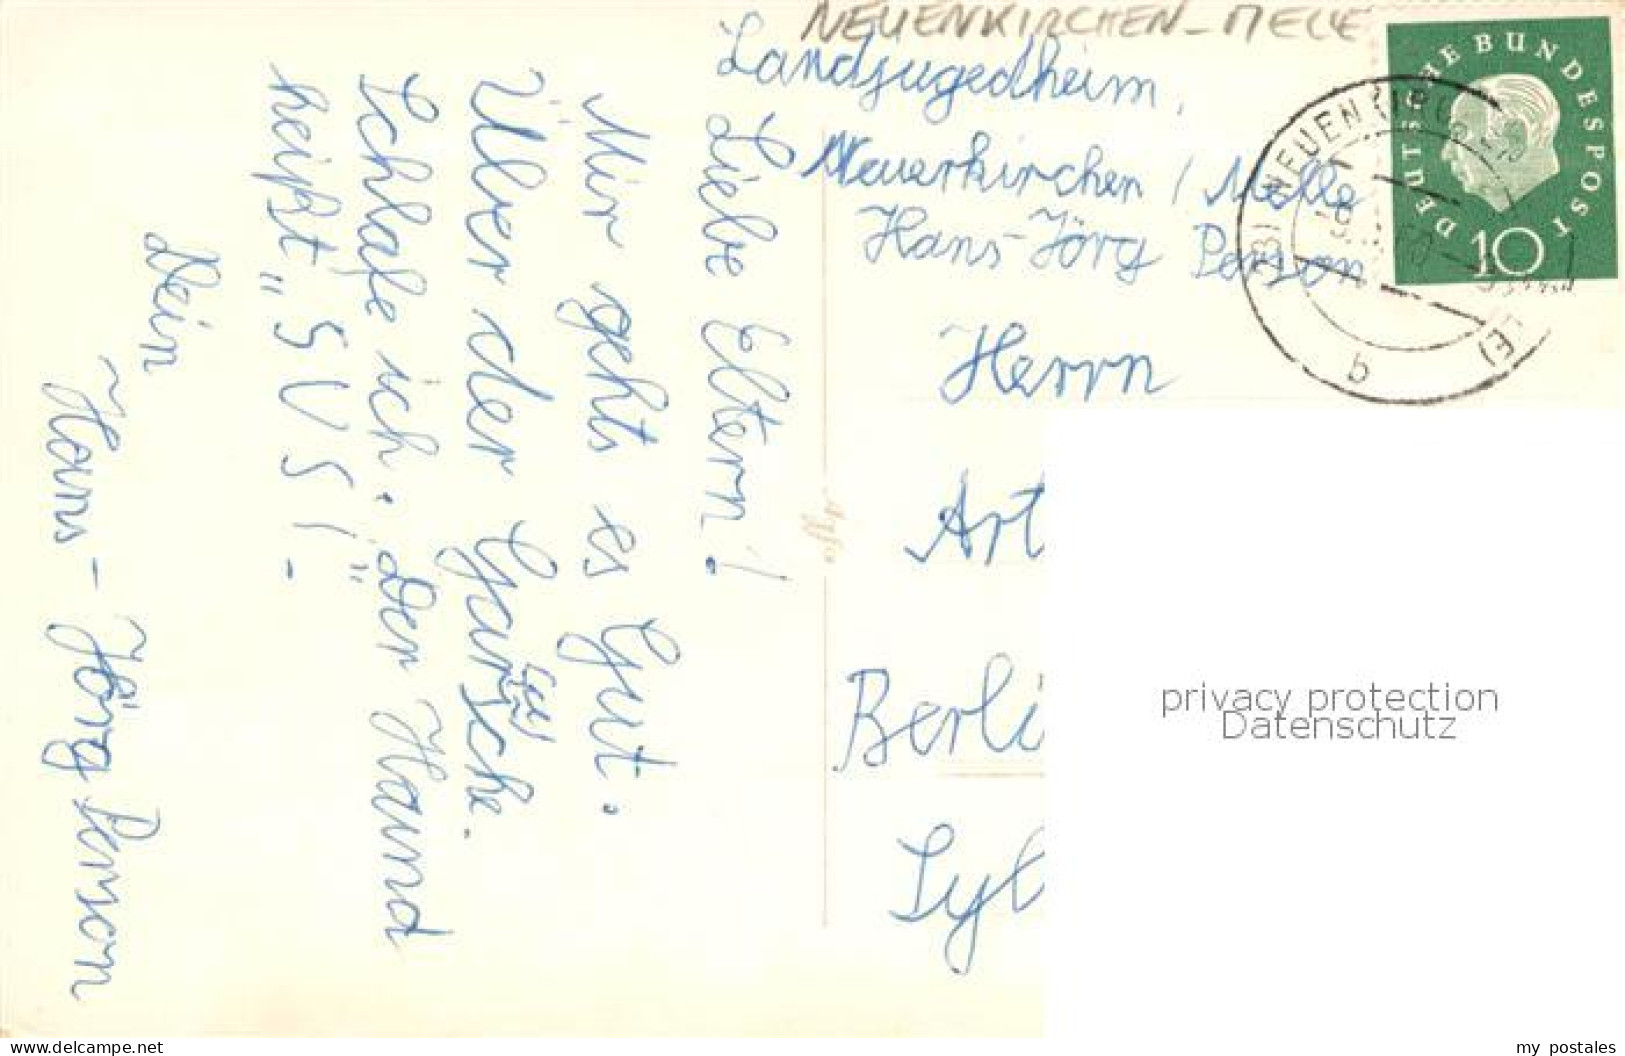 NEUENKIRCHEN-MELLE
Landjugedheim,
Neuerkirchen / Melle
Hans-Jörg Person
Herrn
Art
Berli
Sylt
DEUTSCHE BUNDESPOST
10
NEUENKIRCHEN
b
Liebe Eltern!
Mir gehts es Gut.
Über der Garsche.
Schlafe ich. Der Hund
heißt „SVS!" -
Dein
Hans-Jörg Person
dyffo
privacy protection
Datenschutz
www.delcampe.net
my_postales